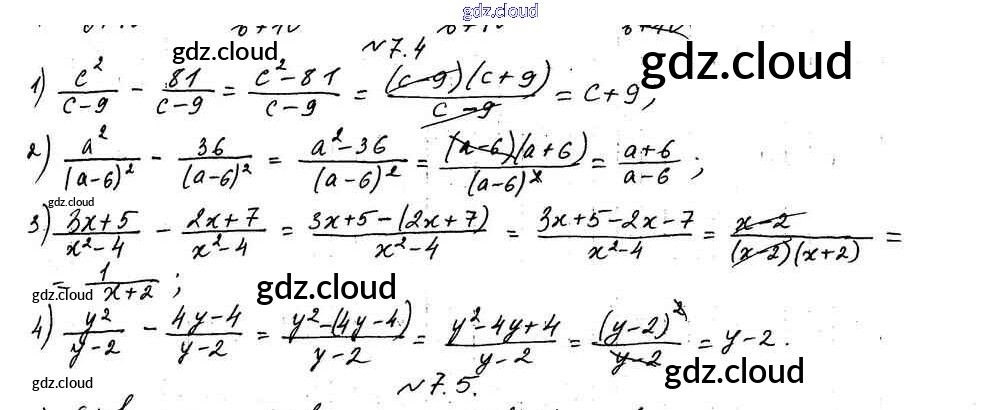 gdz.cloud
№7.4
gdz.cloud
gdz.cloud
1) c²/(c-9) - 81/(c-9) = (c²-81)/(c-9) = (c-9)(c+9)/(c-9) = c+9,
2) a²/(a-6)² - 36/(a-6)² = (a²-36)/(a-6)² = (a-6)(a+6)/(a-6)² = (a+6)/(a-6);
gdz.cloud
3) (3x+5)/(x²-4) - (2x+7)/(x²-4) = (3x+5-(2x+7))/(x²-4) = (3x+5-2x-7)/(x²-4) = (x-2)/((x-2)(x+2)) =
= 1/(x+2);
gdz.cloud
gdz.cloud
4) y²/(y-2) - (4y-4)/(y-2) = (y²-(4y-4))/(y-2) = (y²-4y+4)/(y-2) = (y-2)²/(y-2) = y-2.
gdz.cloud
gdz.cloud
№7.5.